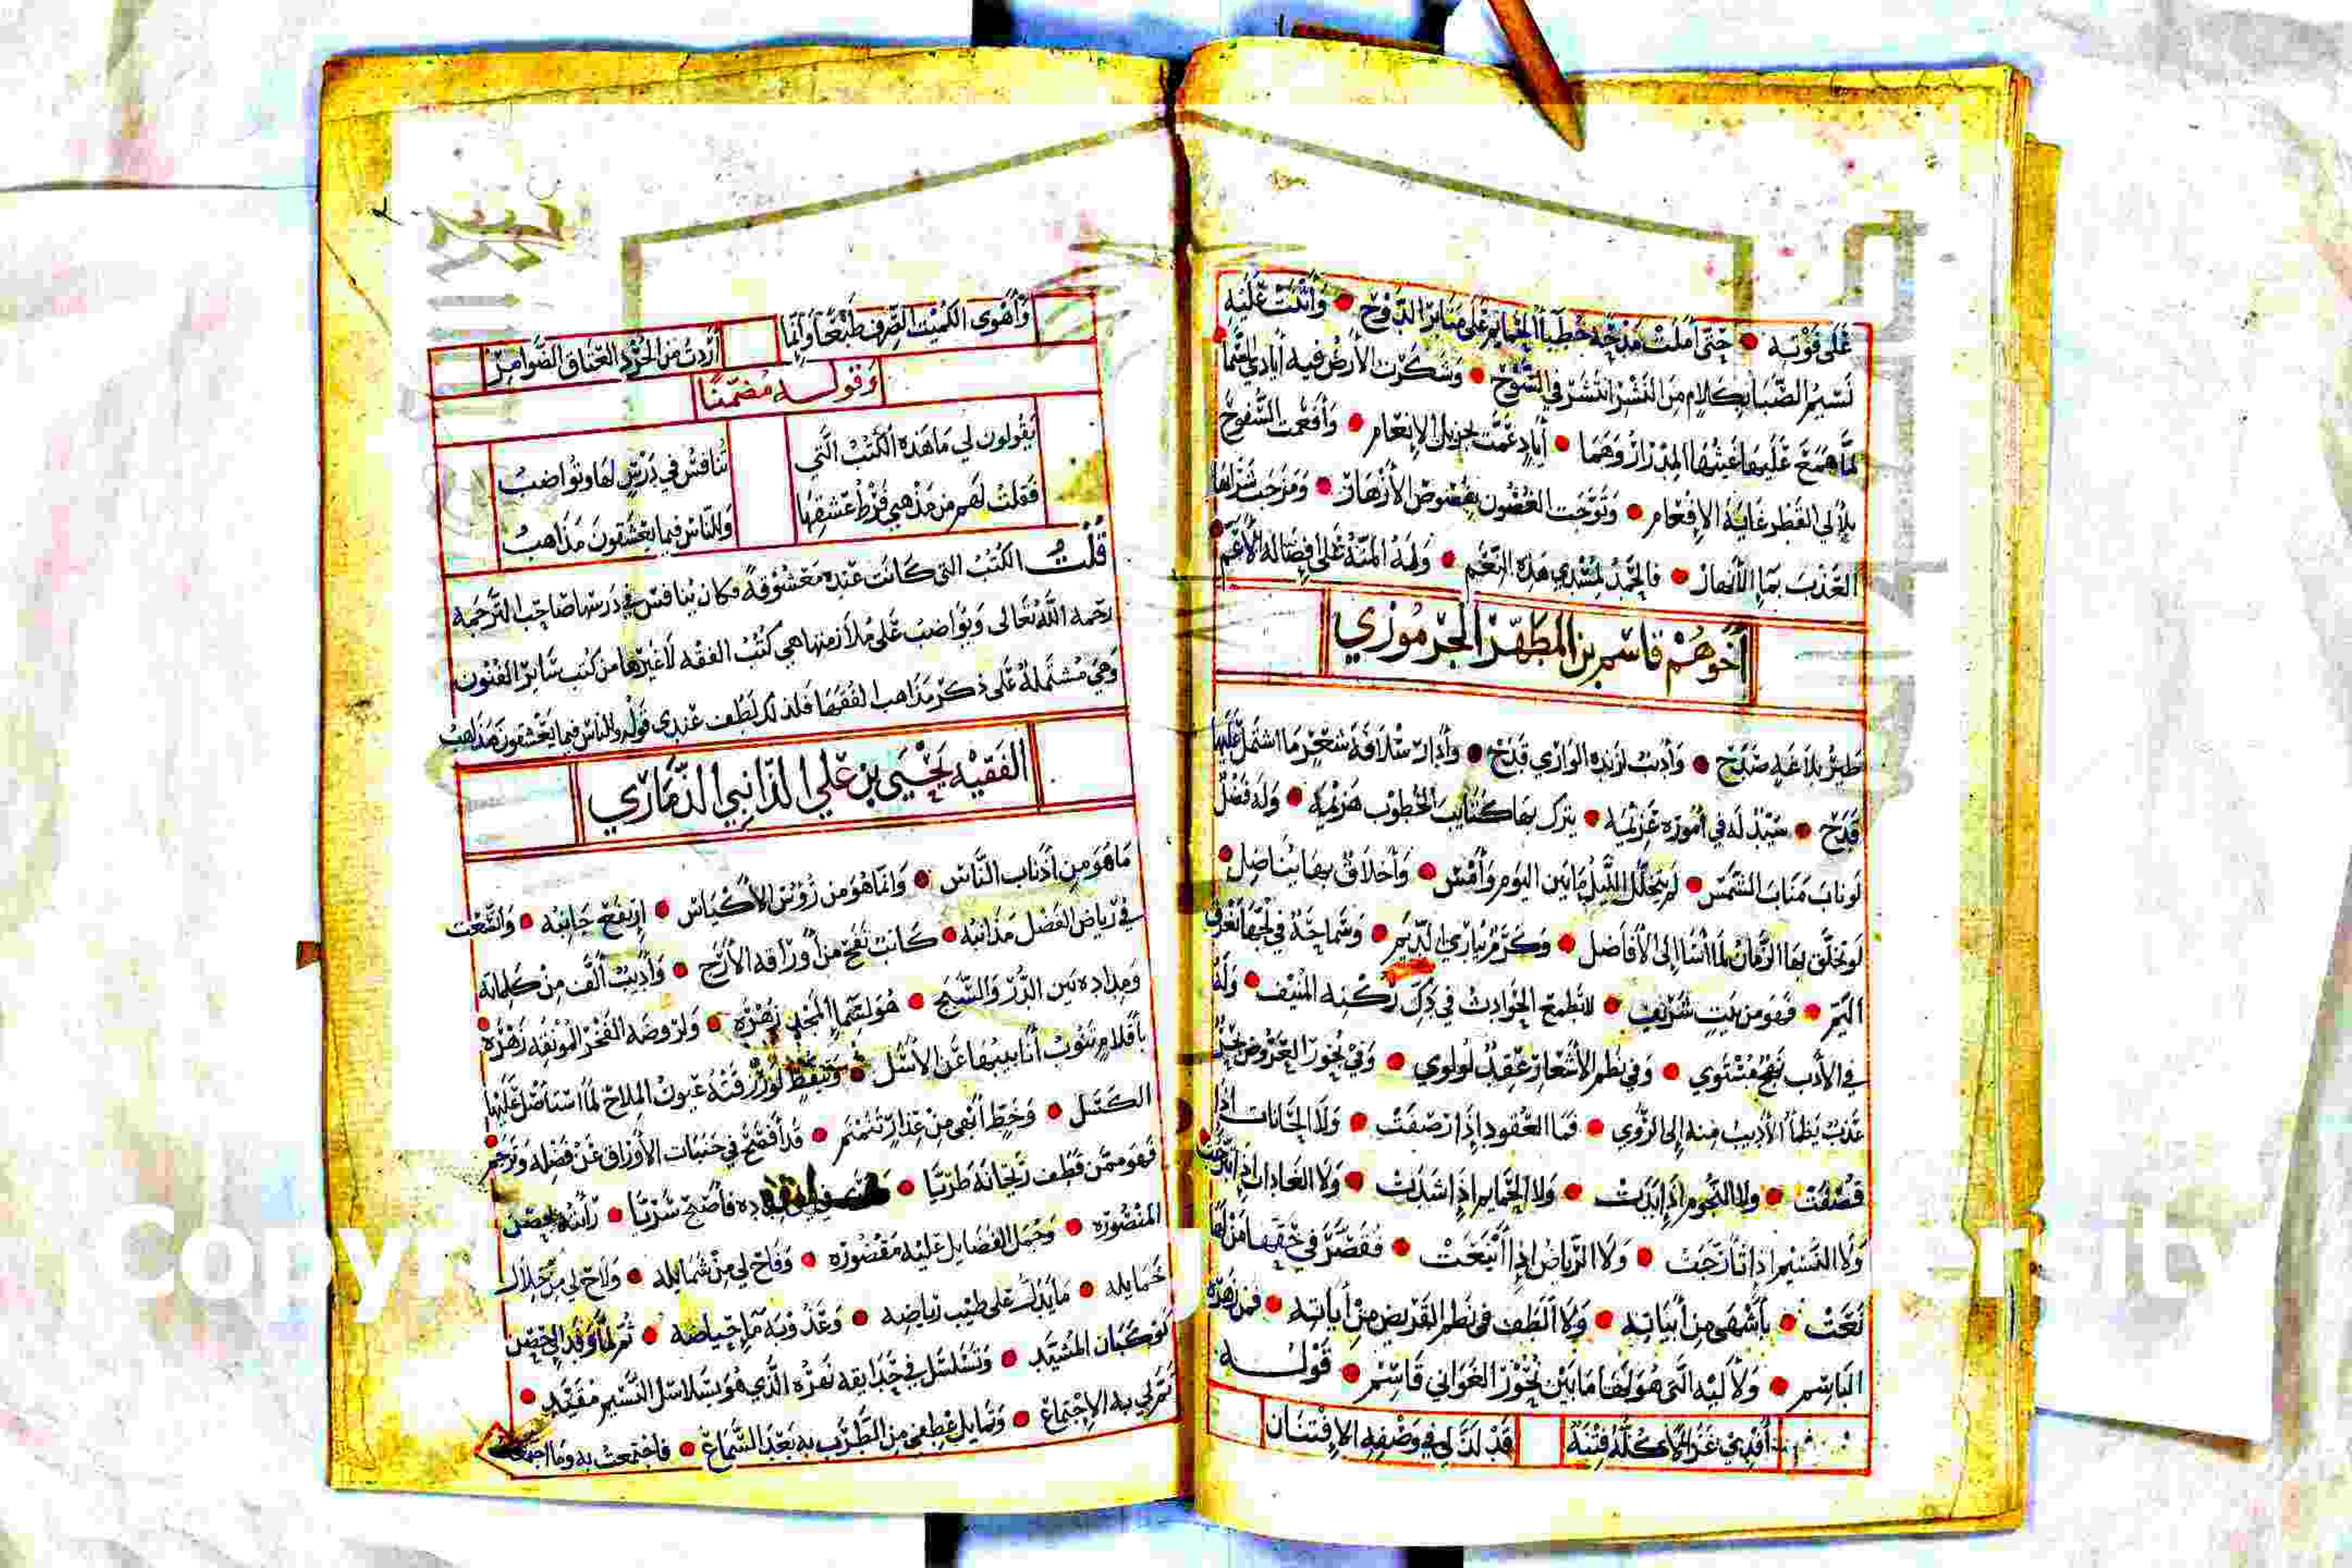 على فوته • حتى أملت مدحه خطباء الحمايم على منابر الدوح • وأثنت عليه
نسيم الصبا بكلام من النشر انتشر في السوح • وشكرت الأرض فيه أيادي السما
لما همع عليها غيثها المدرار وهما • أيادٍ عمت بجزيل الإنعام • وأفعمت السفوح
بلآلي القطر غاية الإفعام • وتوجت الغصون بفصوص الأزهار • ومزجت شرابها
العذب بماء الأنهار • فالحمد لمسدي هذه النعم • وله المنة على إفضاله الأعم
أخوهم قاسم بن المطهر الجرموزي
طير بلاغة صدح • وأديب لزنده الواري قدح • وأدار سلافة شعر ما اشتمل عليها
قدح • سيد له في أموره عزيمه • يترك بها كتايب الخطوب هزيمه • وله فضل
لو ناب مناب الشمس • لم يتخلل الليل ما بين اليوم وأمس • وأخلاق بها يناضل
لو تخلق بها الزمان لما أسا إلى الأفاضل • وكرم يباري الديم • وسماحة في لجها تغرق
اليم • فهو من بيت شريف • لا تطمع الحوادث في دك ركنه المنيف • وله
في الأدب نهج مستوي • وفي نظم الأشعار عقد لولوي • وفي بحور العروض بحر
عذب يظمأ الأديب منه إلى الروي • فما العقود إذا رصفت • ولا الحانات إذا
قصفت • ولا النجوم إذا بدت • ولا الحمايم إذا شدت • ولا الغادات إذا تبرجت
ولا النسيم إذا تأرجت • ولا الرياض إذا أينعت • فقصر في حقها من لها
نعت • بأشهى من أبياته • ولا ألطف في نظم القريض من آياته • فمن زهره
الباسم • ولآليه التي هو لها ما بين نحور الغواني قاسم • قوله
أفدي غزالا كله فتنة قد لذ لي في وصفه الافتنان
وأهوى الكميت الصرف طبعا وإنما أردت من الجرد العتاق الضوامر
وقوله مضمنا
يقولون لي ما هذه الكتب التي تنافس في درس لها وتواضب
فقلت لهم من مذهبي فرط عشقها وللناس فيما يعشقون مذاهب
قلت الكتب التي كانت عنده معشوقة فكان ينافس في درسها صاحب الترجمة
رحمه الله تعالى ويواضب على ملازمتها هي كتب الفقه لا غيرها من كتب ساير الفنون
وهي مشتملة على ذكر مذاهب الفقها فلذلك لطف عندي قوله وللناس فيما يعشقون مذاهب
الفقيه يحيى بن علي المذانبي الذماري
ما هو من أذناب الناس • وإنما هو من رؤس الأكياس • ارتفع جانبه • واتسعت
في رياض الفضل مذانبه • كانت تفح من أوراقه الأرج • وأديب ألف من كلماته
ومداده بين الدر والسبج • هو لسما المجد زهره • ولروضة الفخر المونقه زهره
بأقلام تنوب أنابيبها عن الأسل • وتنقط لو رزقته عيون الملاح لما استاصل عليها
الكسل • وخط أبهى من عذار تنمنم • قد أفصح في جنبات الأوراق عن فضله وترجم
فهو ممن قطف ريحانة طريا • فأصبح سريا • رأيته بحصن
المنصوره • وحمل الفضايل عليه مقصوره • وفاح لي من شمايله • ولاح لي من خلال
خمايله • ما يدل على طيب رياضه • وعذوبة ما حياضه • ثم لما وفد إلى حصن
كوكبان المشيد • وتسلسل في حدايقه نهره الذي هو بسلاسل النسيم مقيد •
تم لي به الاجتماع • وتمايل عطفي من الطرب به بعد السماع • فاجتمعت به وما اجتمعت
Copyright University